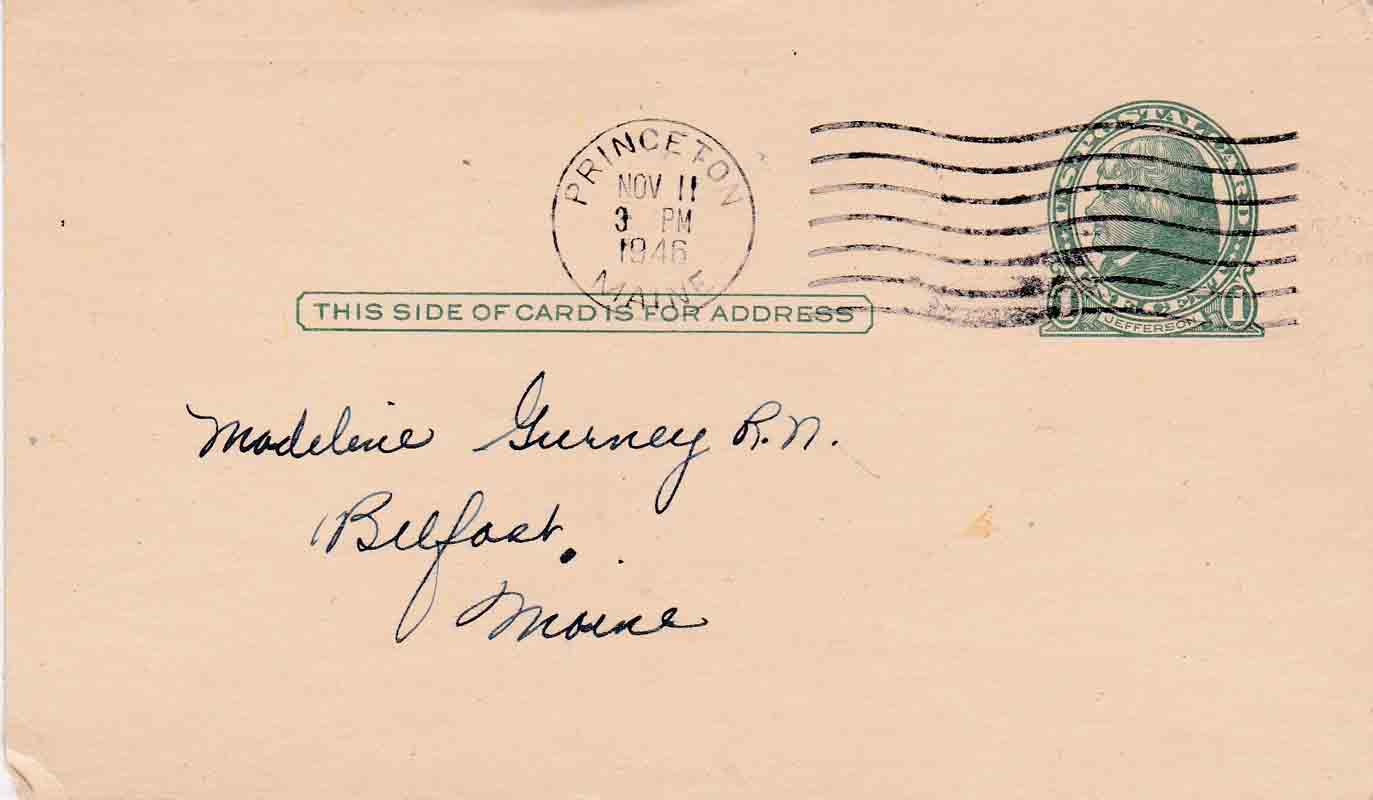 PRINCETON
NOV 11
3 PM
1946
MAINE
U.S. POSTAL CARD
ONE CENT
1 JEFFERSON 1
THIS SIDE OF CARD IS FOR ADDRESS
Madeline Gurney R.N.
Belfast.
Maine